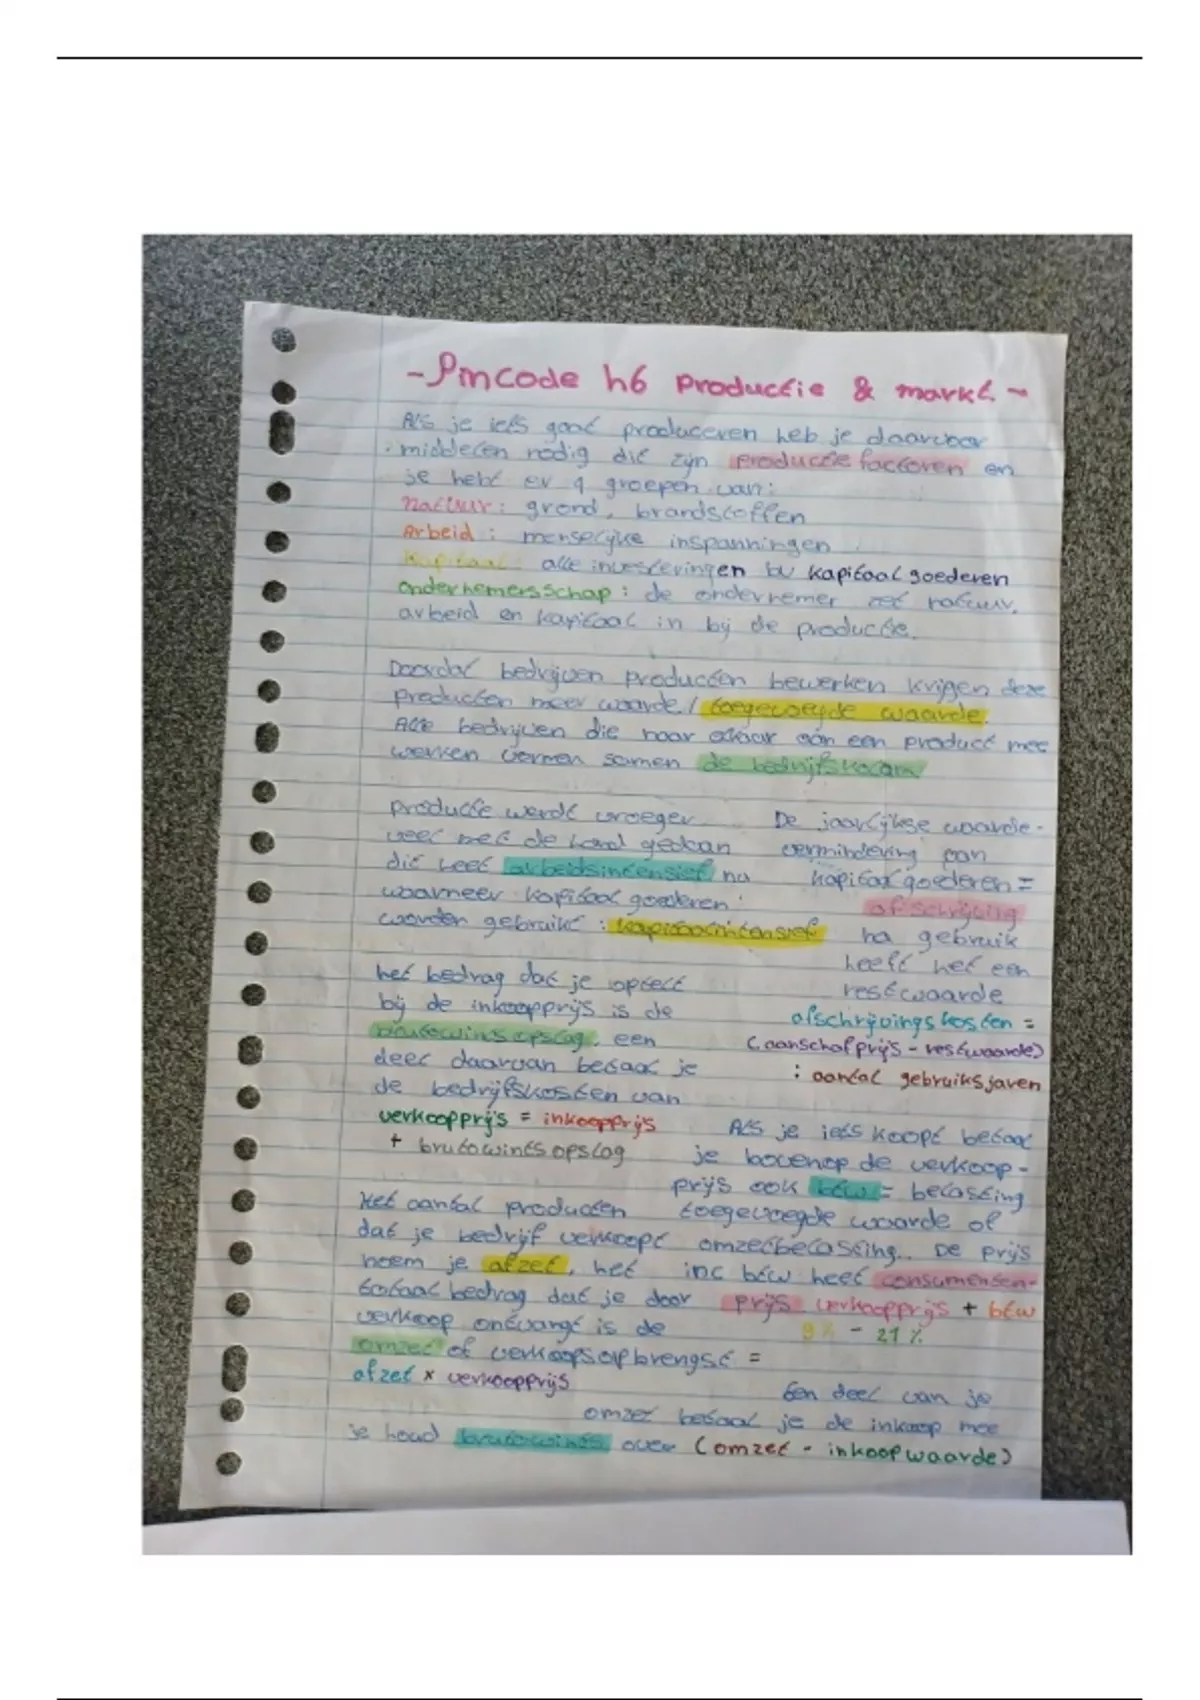 - Pincode h6 Productie & markt -
Als je iets gaat produceren heb je daarvoor
middelen nodig dit zijn productie factoren en
je hebt er 4 groepen van:
natuur: grond, brandstoffen
Arbeid: menselijke inspanningen
Kapitaal: alle investeringen bv kapitaal goederen
ondernemersschap: de ondernemer zet natuur,
arbeid en kapitaal in bij de productie.
Doordat bedrijven producten bewerken krijgen deze
producten meer waarde / toegevoegde waarde.
Alle bedrijven die naar elkaar aan een product mee
werken vormen samen de bedrijfskolom
productie werdt vroeger
veel met de hand gedaan
dit heet arbeidsintensief nu
waarneer kapitaal goederen
worden gebruikt: kapitaalintensief
De jaarlijkse waarde-
vermindering van
kapitaal goederen =
afschrijving
na gebruik
heeft het een
restwaarde
afschrijvings kosten =
(aanschafprijs - restwaarde)
: aantal gebruiksjaren
het bedrag dat je optelt
bij de inkoopprijs is de
brutowinstopslag, een
deel daarvan betaal je
de bedrijfskosten van
verkoopprijs = inkoopprijs
+ brutowintsopslag
Als je iets koopt betaal
je bovenop de verkoop-
prijs ook btw = belasting
toegevoegde waarde of
omzetbelasting. De prijs
inc btw heet consumenten-
prijs verkoopprijs + btw
9% - 21%
Het aantal producten
dat je bedrijf verkoopt
noem je afzet, het
totaal bedrag dat je door
verkoop ontvangt is de
omzet of verkoopsopbrengst =
afzet x verkoopprijs
Een deel van je
omzet betaal je de inkoop mee
je houd brutowints over (omzet - inkoopwaarde)